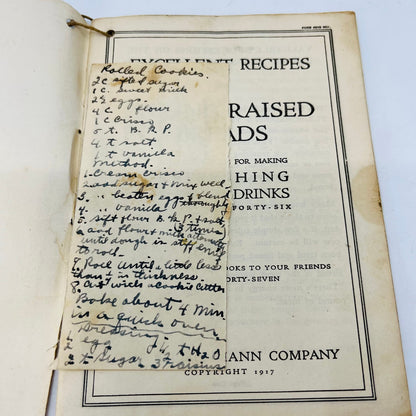 EXCELLENT RECIPES
RAISED
ADS
FOR MAKING
HING
DRINKS
FORTY-SIX
OOKS TO YOUR FRIENDS
ORTY-SEVEN
MANN COMPANY
COPYRIGHT 1917
Rolled Cookies.
2 c. sifted sugar
1 c. sweet milk
2 eggs.
4 c. flour
1 c Crisco
t. B. K. P.
t salt
1 t vanilla
Method.
1. Cream Crisco
2. add sugar & mix well.
3. " beaten eggs & blend
4. " vanilla thoroughly
5. sift flour B. K. P. & salt
3 times
add flour & milk alternately
until dough is stiff enough
to roll.
7. Roll until a little less
than in thickness.
8. Cut with a cookie cutter
Bake about min
in a quick oven.
Dressing
egg t H2O
t sugar 3 raisins